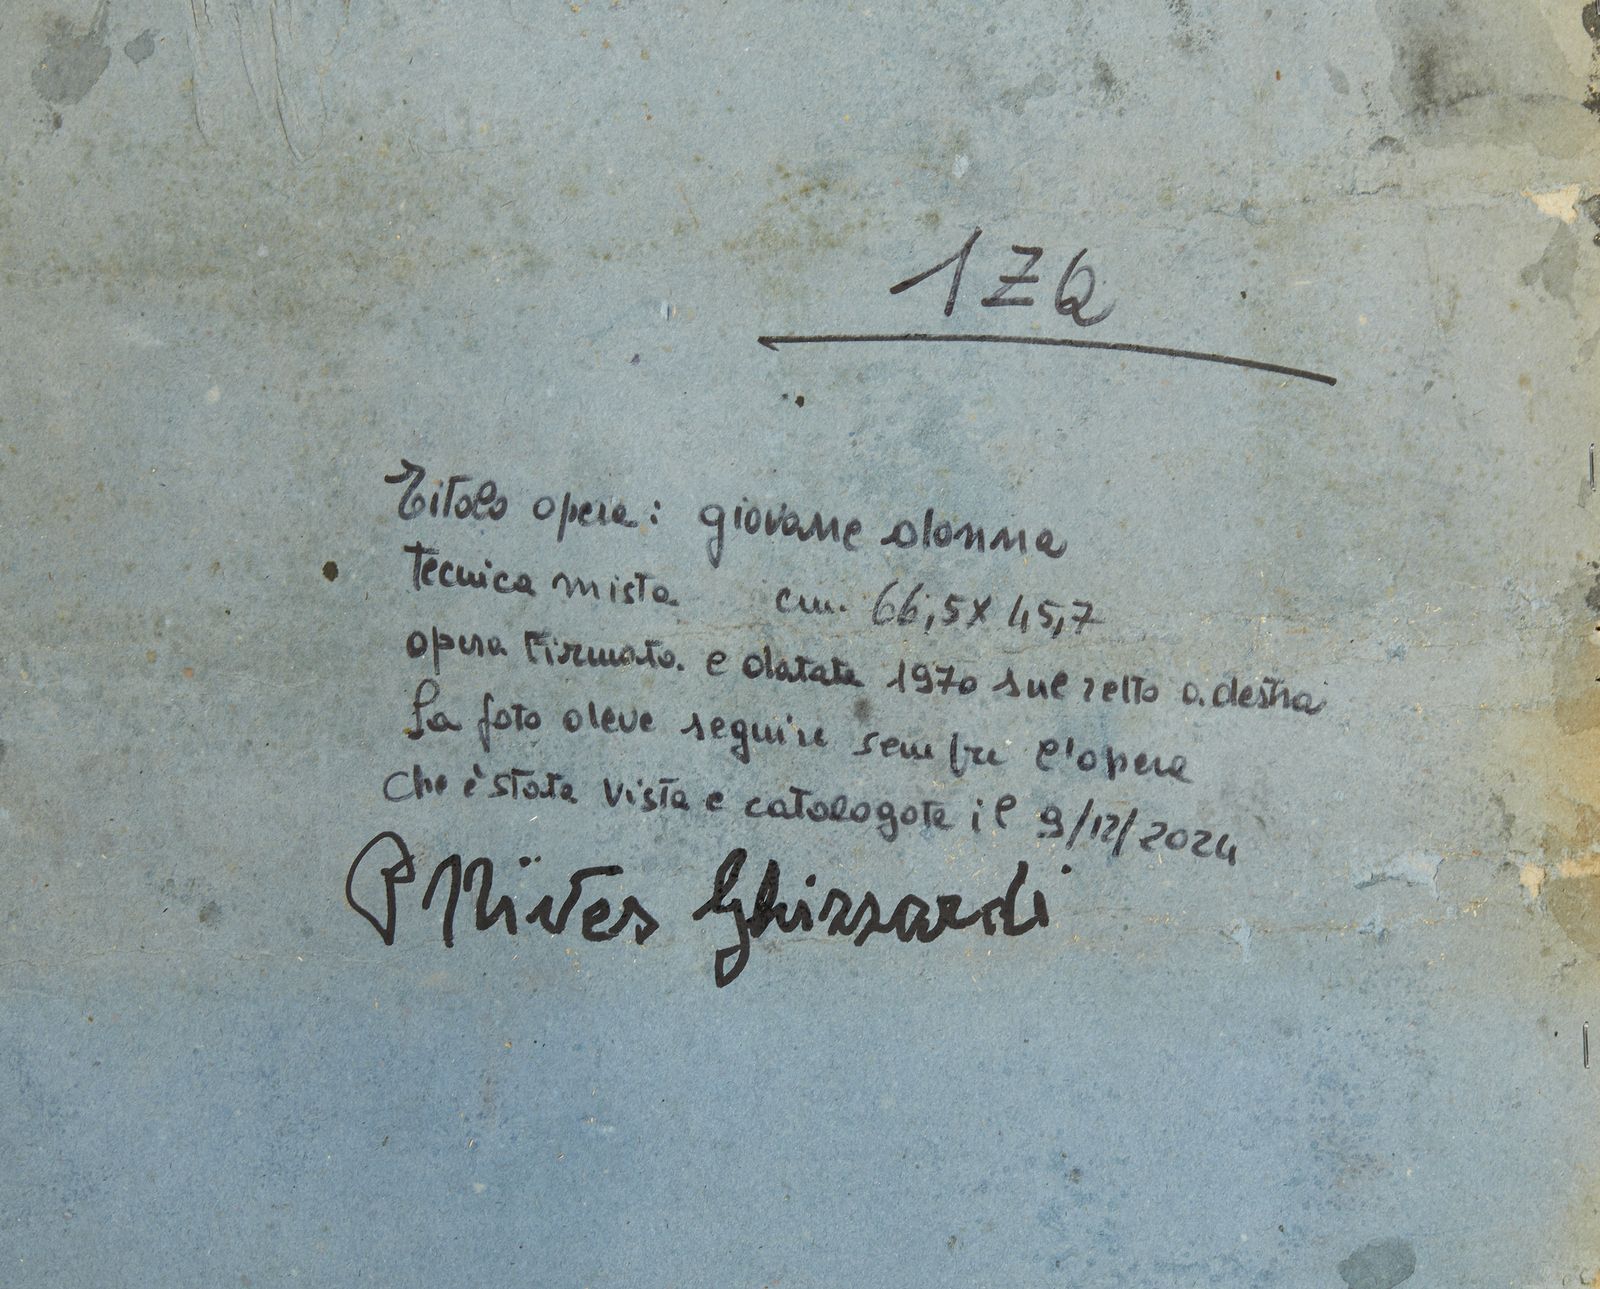 1ZQ
Titolo opera: giovane donna
tecnica mista cm. 66,5x45,7
opera firmata e datata 1970 sul retto a destra
La foto deve seguire sempre l'opera
che è stata vista e catalogata il 9/12/2024
P Nives Ghizzardi